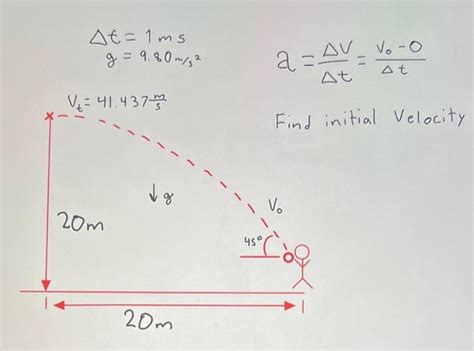 Δt = 1ms
g = 9.80 m/s²
a = ΔV/Δt = V₀-0/Δt
Vₜ = 41.437 m/s
Find initial Velocity
↓g
V₀
45°
20m
20m